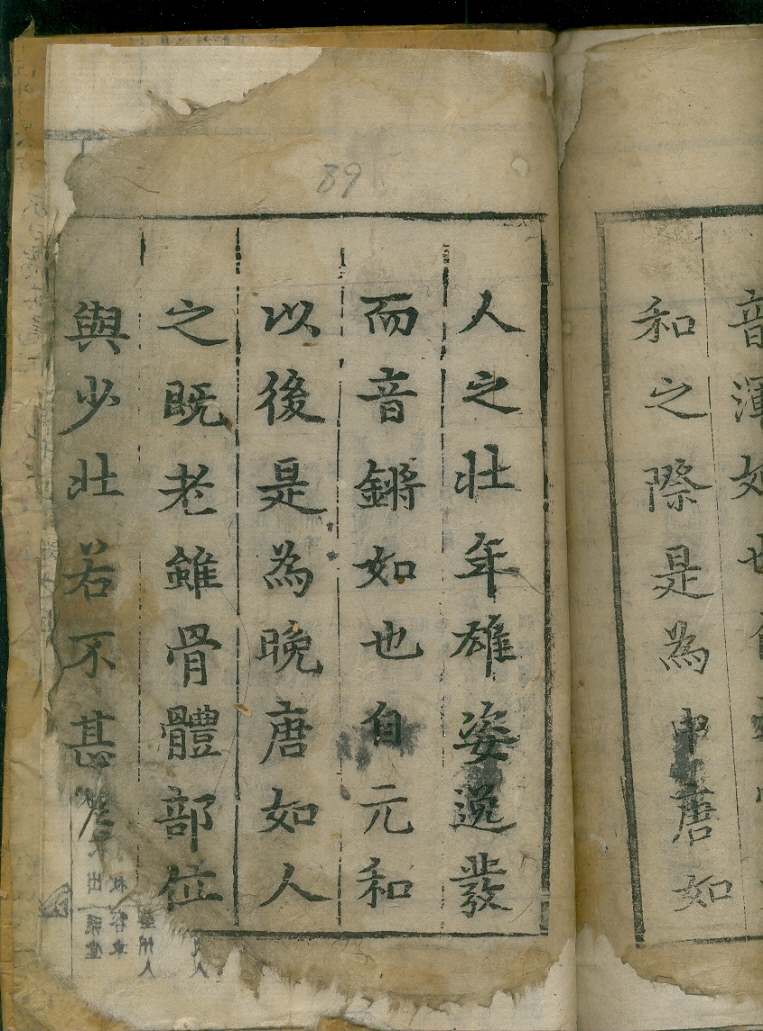 89
音渾如也
和之際是為中唐如
人之壯年雄姿逸發
而音鏘如也自元和
以後是為晚唐如人
之既老雖骨體部位
與少壯若不甚